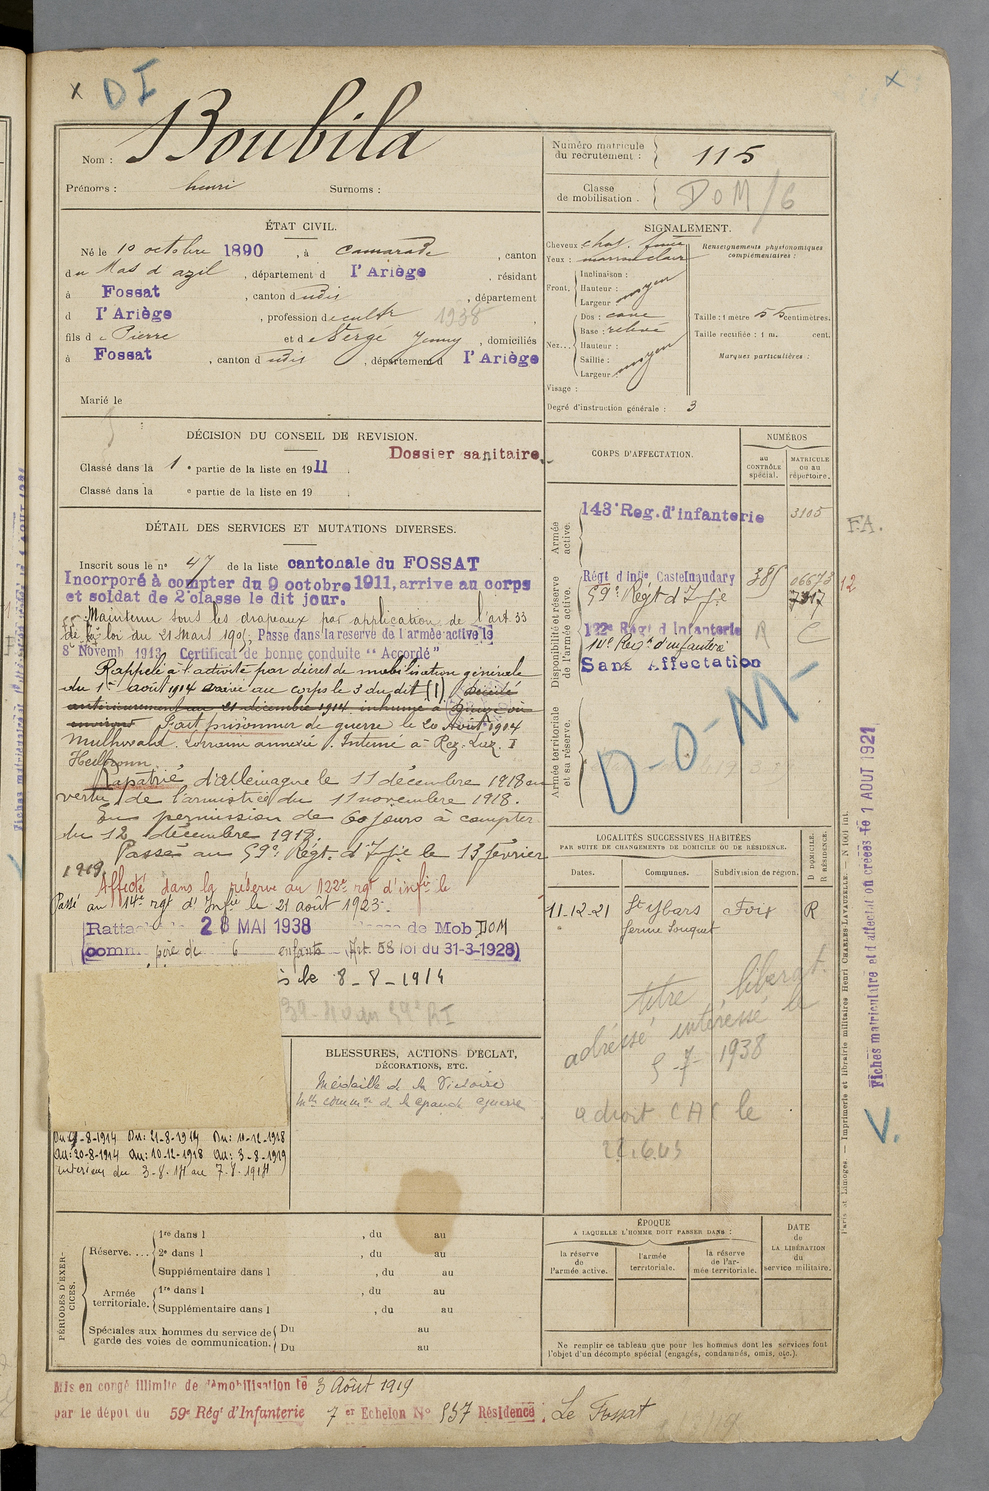 x DI x
Boubila
Nom :
Prénoms : henri Surnoms :
Numéro matricule
du recrutement : 115
Classe
de mobilisation . DOM/6
ÉTAT CIVIL.
Né le 10 octobre 1890 , à Camarade , canton
du Mas d'azil , département d l'Ariège , résidant
à Fossat , canton dudit , département
d l'Ariège , profession de cultr 1938
fils de Pierre et de Vergé Jenny , domiciliés
à Fossat , canton dudit , département d l'Ariège
Marié le
SIGNALEMENT.
Cheveux chat. foncé
Yeux : marron clair
Renseignements physionomiques
complémentaires :
Front.
Inclinaison :
Hauteur : moyen
Largeur
Nez...
Dos : cave
Base : relevé
Hauteur :
Saillie : moyen
Largeur
Taille : 1 mètre 55 centimètres.
Taille rectifiée : 1 m. cent.
Marques particulières :
Visage :
Degré d'instruction générale : 3
DÉCISION DU CONSEIL DE REVISION.
Dossier sanitaire.
Classé dans la 1 e partie de la liste en 1911 .
Classé dans la e partie de la liste en 19 .
CORPS D'AFFECTATION.
NUMÉROS
au
CONTRÔLE
spécial.
MATRICULE
OU AU
répertoire.
Armée
active.
143e Reg. d'infanterie 3105
F.A.
Disponibilité et réserve
de l'armée active.
Régt d'infie Castelnaudary 385 06673 12
59e Régt d'Ifie 7317
122e Régt d'Infanterie R C
14e Regt d'infanterie
Sans Affectation
D-O-M-
Armée territoriale
et sa réserve.
DÉTAIL DES SERVICES ET MUTATIONS DIVERSES.
Inscrit sous le n° 47 de la liste cantonale du FOSSAT
Incorporé à compter du 9 octobre 1911, arrive au corps
et soldat de 2e classe le dit jour.
Maintenu sous les drapeaux par application de l'art 33
de la loi du 21 Mars 1905. Passé dans la réserve de l'armée active le
8 Novemb 1913 Certificat de bonne conduite "Accordé"
Rappelé à l'activité par décret de mobilisation générale
du 1er août 1914 arrivé au corps le 3 du dit (1) décédé
antérieurement au 21 décembre 1914 inhumé à
environs Fait prisonnier de guerre le 20 Août 1914
Lorraine annexée. Interné à
Heilbronn
Rapatrié d'Allemagne le 11 décembre 1918 en
vertu de l'armistice du 11 novembre 1918.
En permission de 60 jours à compter
du 12 décembre 1918.
Passé au 59e Régt d'Ifie le 13 février
1919.
Affecté dans la réserve au 122e rgt d'infie le
Passé au 14e rgt d'Infie le 21 août 1923.
Rattac 28 MAI 1938 de Mob DOM
(comm. père de 6 enfants Art. 58 loi du 31-3-1928)
le 8-8-1914
59e RI
LOCALITÉS SUCCESSIVES HABITÉES
PAR SUITE DE CHANGEMENTS DE DOMICILE OU DE RÉSIDENCE.
D DOMICILE.
R RÉSIDENCE.
Dates. Communes. Subdivision de région.
11-12-21 St Ybars Foix R
ferme Souquet
titre libérat.
adressé intéressé le
5-7-1938
a droit CAC le
BLESSURES, ACTIONS D'ÉCLAT,
DÉCORATIONS, ETC.
Médaille de la Victoire
mlle commve de la grande guerre
Du: 8-8-1914 Du: 21-8-1914 Du: 10-12-1918
Au: 20-8-1914 Au: 10-12-1918 Au: 3-8-1919
intérieur du 3-8-14 au 7-8-1914
PÉRIODES D'EXER-
CICES.
Réserve....
1re dans l , du au
2e dans l , du au
Supplémentaire dans l , du au
Armée
territoriale.
1re dans l , du au
Supplémentaire dans l , du au
Spéciales aux hommes du service de
garde des voies de communication.
Du au
Du au
ÉPOQUE
A LAQUELLE L'HOMME DOIT PASSER DANS :
la réserve
de
l'armée active.
l'armée
territoriale.
la réserve
de l'ar-
mée territoriale.
DATE
de
LA LIBÉRATION
du
service militaire.
Ne remplir ce tableau que pour les hommes dont les services font
l'objet d'un décompte spécial (engagés, condamnés, omis, etc.).
Mis en congé illimité de démobilisation le 3 Août 1919
par le dépôt du 59e Régt d'Infanterie 7 er Echelon N° 957 Résidence : Le Fossat
Paris et Limoges. — Imprimerie et librairie militaires Henri CHARLES-LAVAUZELLE. — N 1001 int.
Fiches matriculaire et d'affectat on créées le 1 AOUT 1921
V.